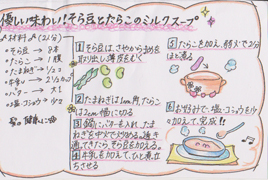 優しい味わい!そら豆とたらこのミルクスープ
材料(2人分)
・そら豆→8本
・たらこ→1腹
・たまねぎ→1/2コ
・牛乳→
・バター→大1
・塩・コショウ→少々
1 そら豆は、さやから豆を
取り出し薄皮もむく
2 たまねぎは1cm角、たらこ
は2cm幅に切る
3 鍋にバターを入れ、たま
ねぎを中火で炒める。透き
通ってきたら、そら豆を加える。
4 牛乳を加えて、ひと煮立ち
させる
5 たらこを加え、弱火で3分
ほど煮る
6 お好みで、塩・コショウを少
々加えて、完成!!